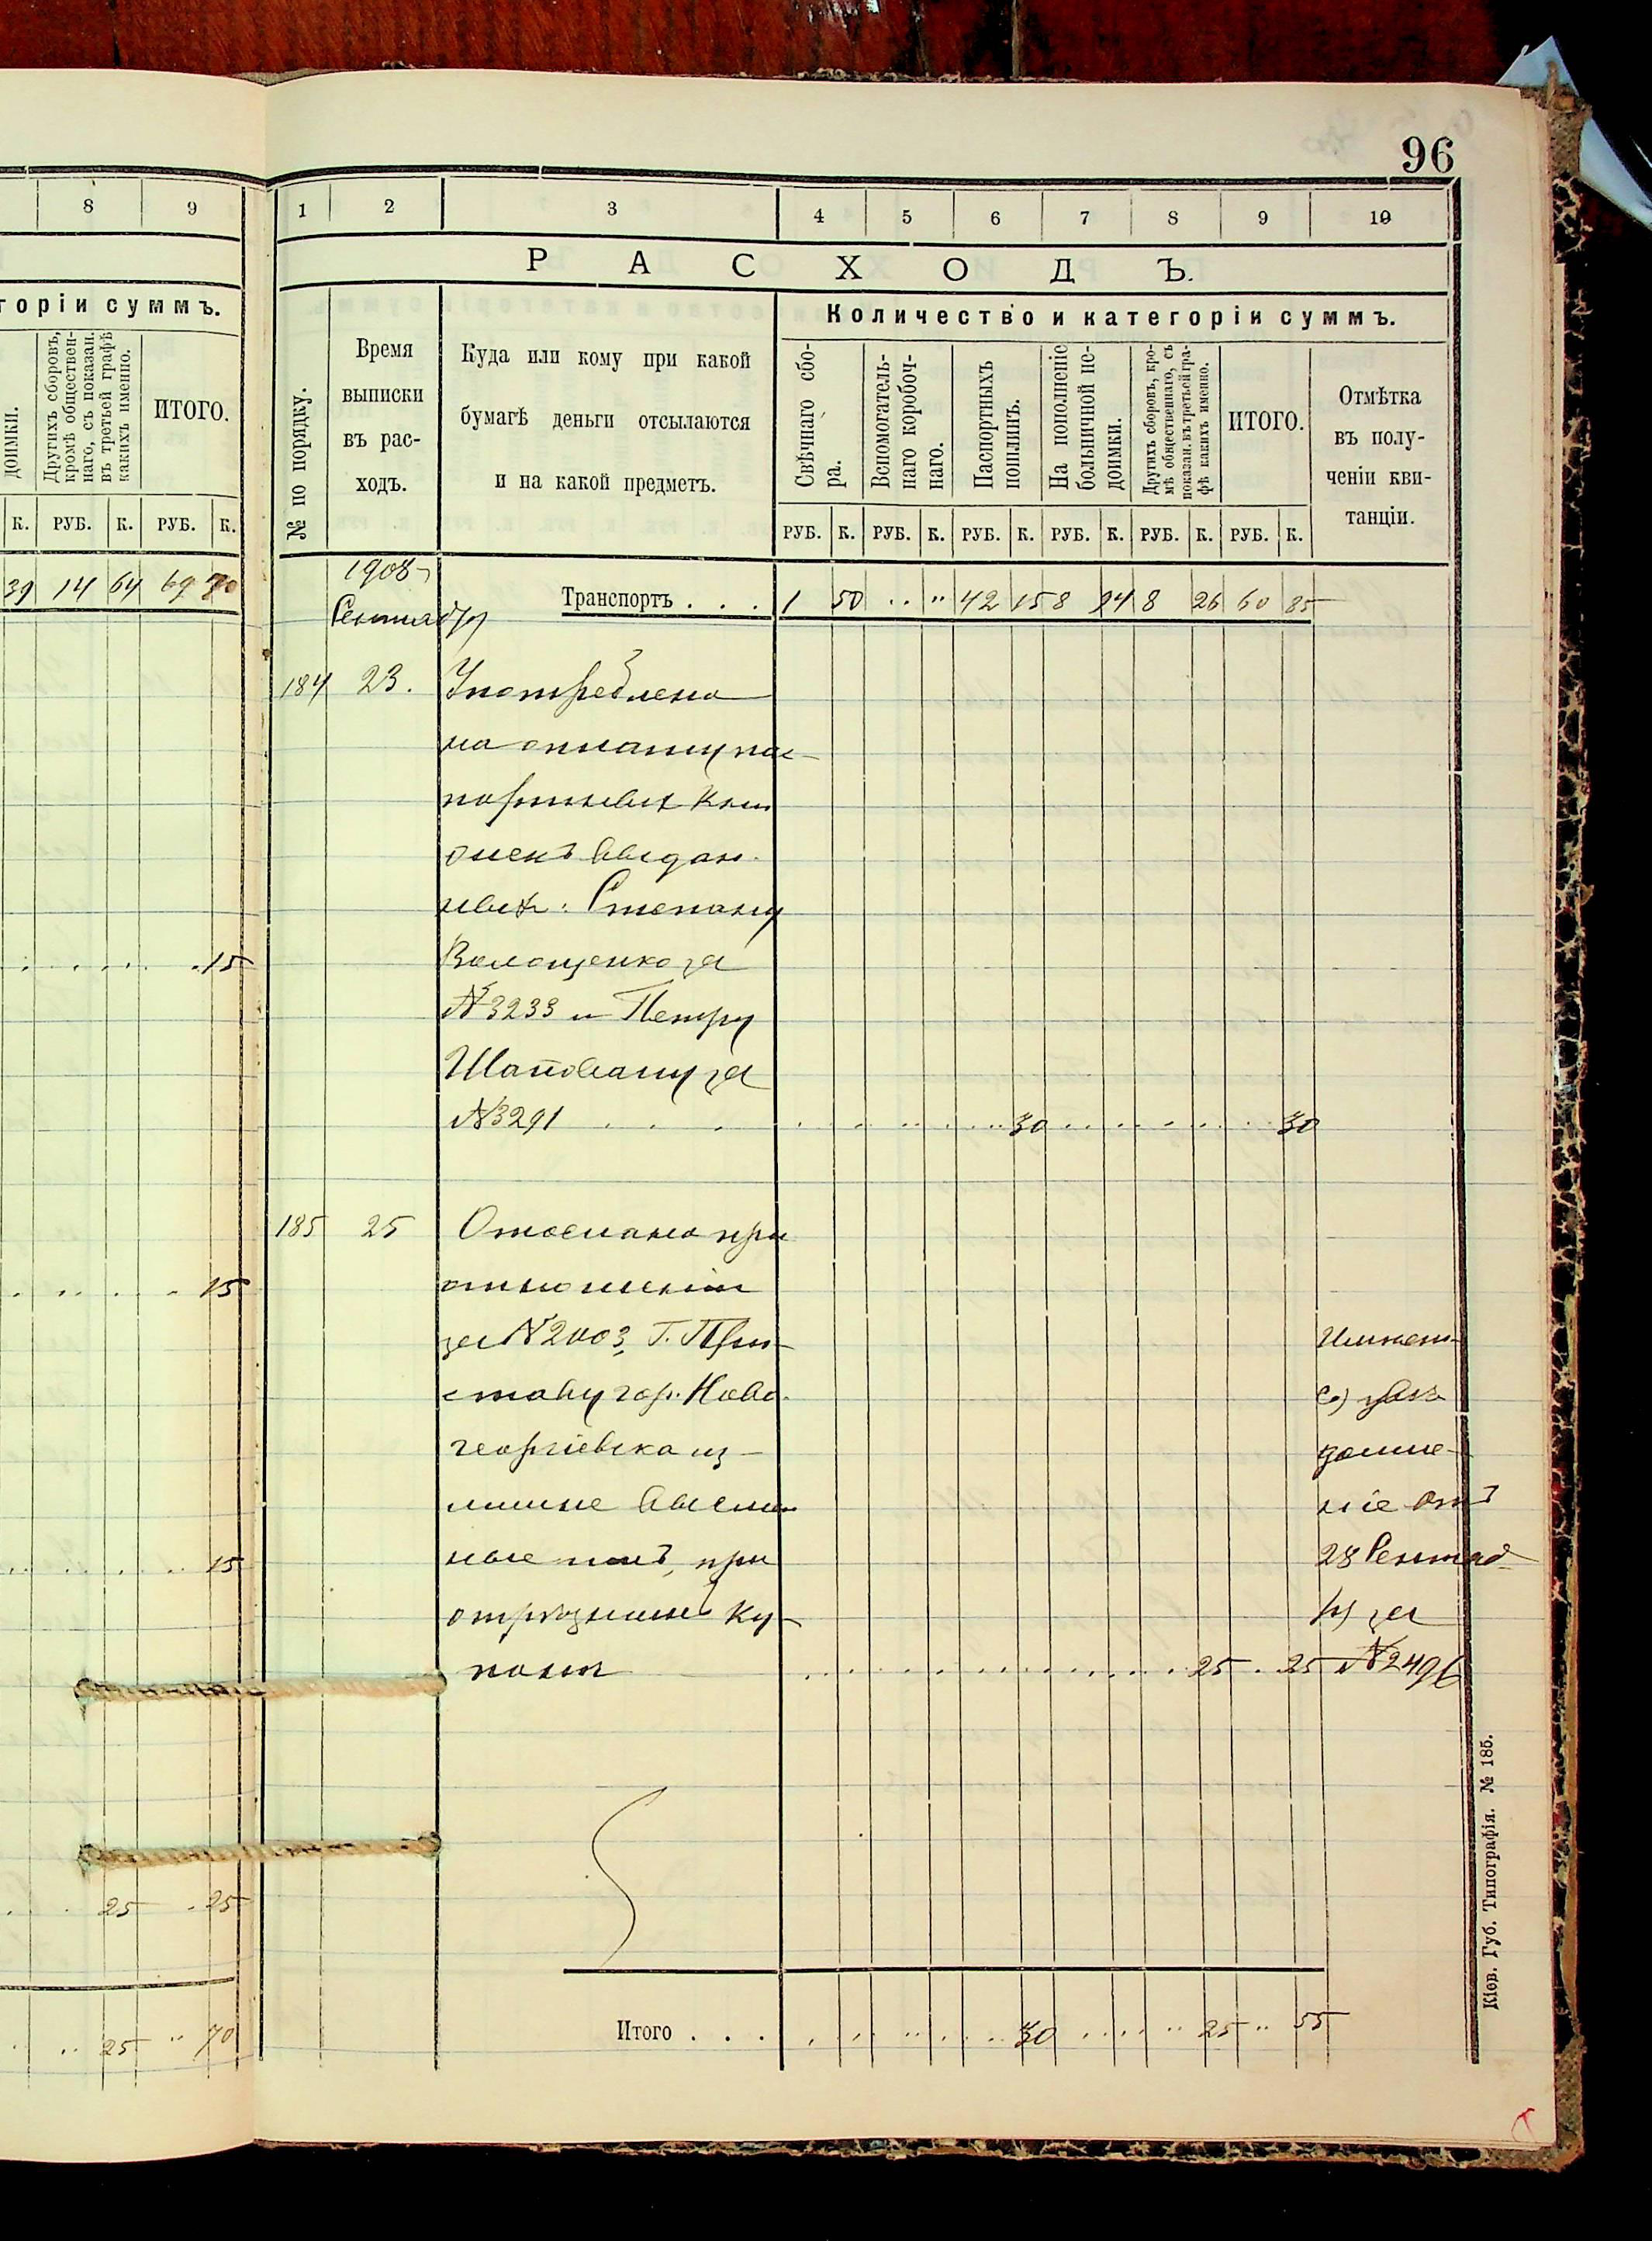 96
8 9
горіи суммъ.
доимки.
Другихъ сборовъ,
кромѣ обществен-
наго, съ показан.
въ третьей графѣ
какихъ именно.
ИТОГО.
К. РУБ. К. РУБ. К.
39 14 64 69 70
15
15
15
25 25
25 " 70
1 2 3 4 5 6 7 8 9 10
РАСХОДЪ.
№ по порядку.
Время
выписки
въ рас-
ходъ.
Куда или кому при какой
бумагѣ деньги отсылаются
и на какой предметъ.
Количество и категоріи суммъ.
Свѣчнаго сбо-
ра.
Вспомогатель-
наго коробоч-
наго.
Паспортныхъ
пошлинъ.
На пополненіе
больничной не-
доимки.
Другихъ сборовъ, кро-
мѣ общественнаго, съ
показан. въ третьей гра-
фѣ какихъ именно.
ИТОГО.
Отмѣтка
въ полу-
ченіи кви-
танціи.
РУБ. К. РУБ. К. РУБ. К. РУБ. К. РУБ. К. РУБ. К.
1908
Сентября
Транспортъ . . . 1 50 .. " 42 15 8 94 8 26 60 85
184 23. Употреблено
на оплату пас-
портныхъ кни
жекъ выдан-
ныхъ: Степану
Волощенко за
№ 3233 и Петру
Шаповалу за
№ 3291 30 30
185 25 Отослано при
отношеніи
за № 2003, Г. При-
ставу гор. Ново-
георгіевска из-
лишне выслан
ные имъ, при
отрѣзными ку-
поны 25 25
увѣ
домле-
ніе отъ
28 Сентяб-
ря за
№ 2496
Итого . . . 30 25 " 55
Кіев. Губ. Типографія. № 185.